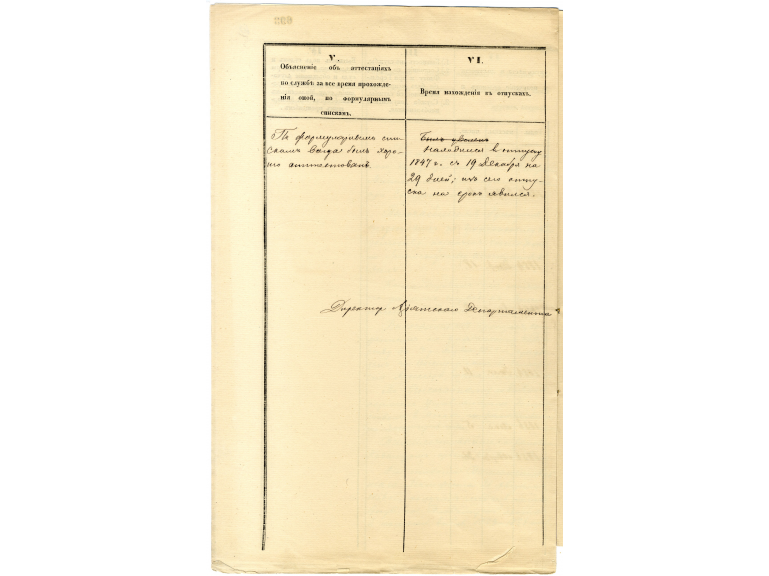 V.
Объясненіе объ аттестаціяхъ
по службѣ за все время прохожде-
нія оной, по формулярнымъ
спискамъ.
VI.
Время нахожденія въ отпускахъ.
По формулярнымъ спи-
скамъ всегда былъ хоро-
шо аттестованъ.
Былъ уволенъ
Находился въ отпуску
1847 г. съ 19 Декабря на
29 дней; изъ сего отпу-
ска на срокъ явился.
Директор Азіятскаго Департамента